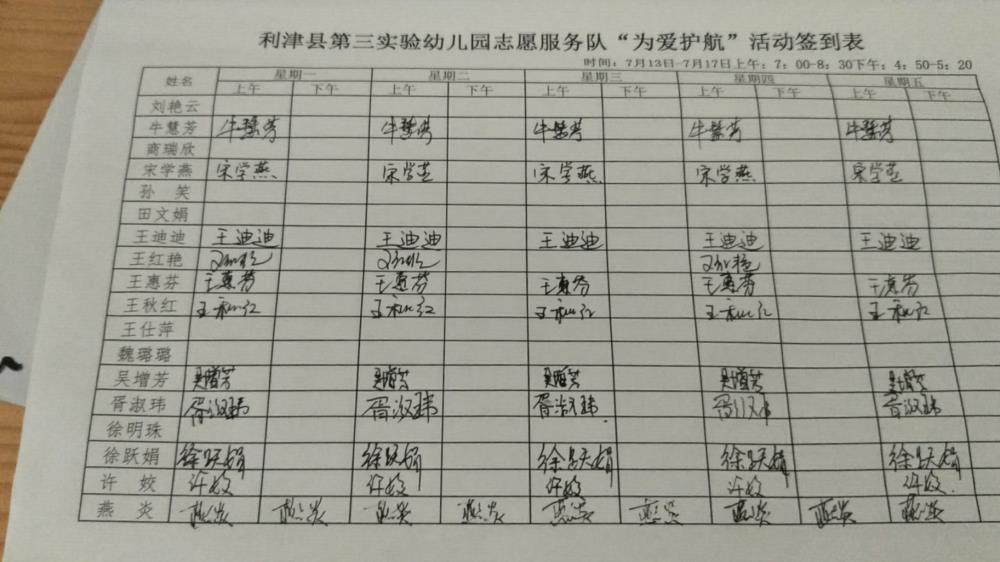 利津县第三实验幼儿园志愿服务队“为爱护航”活动签到表
时间：7月13日-7月17日上午：7：00-8：30下午：4：50-5：20
姓名 星期一 星期二 星期三 星期四 星期五
上午 下午 上午 下午 上午 下午 上午 下午 上午 下午
刘艳云
牛慧芳 牛慧芳 牛慧芳 牛慧芳 牛慧芳 牛慧芳
商瑞欣
宋学燕 宋学燕 宋学燕 宋学燕 宋学燕 宋学燕
孙 笑
田文娟
王迪迪 王迪迪 王迪迪 王迪迪 王迪迪 王迪迪
王红艳 王红艳 王红艳 王红艳
王惠芬 王惠芬 王惠芬 王惠芬 王惠芬 王惠芬
王秋红 王秋红 王秋红 王秋红 王秋红 王秋红
王仕萍
魏璐璐
吴增芳 吴增芳 吴增芳 吴增芳 吴增芳 吴增芳
胥淑玮 胥淑玮 胥淑玮 胥淑玮 胥淑玮 胥淑玮
徐明珠
徐跃娟 徐跃娟 徐跃娟 徐跃娟 徐跃娟 徐跃娟
许 姣 许姣 许姣 许姣 许姣 许姣
燕 炎 燕炎 燕炎 燕炎 燕炎 燕炎 燕炎 燕炎 燕炎 燕炎